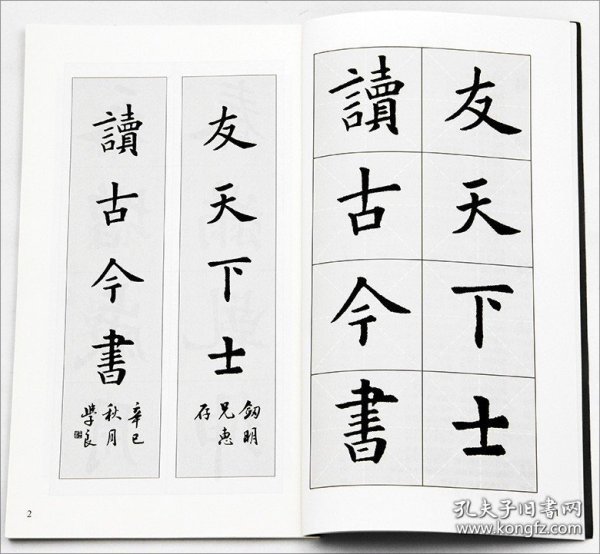 友天下士
釰明
兄惠
存
讀古今書
辛巳
秋月
學良
2
友天下士
讀古今書
孔夫子旧书网
www.kongfz.com